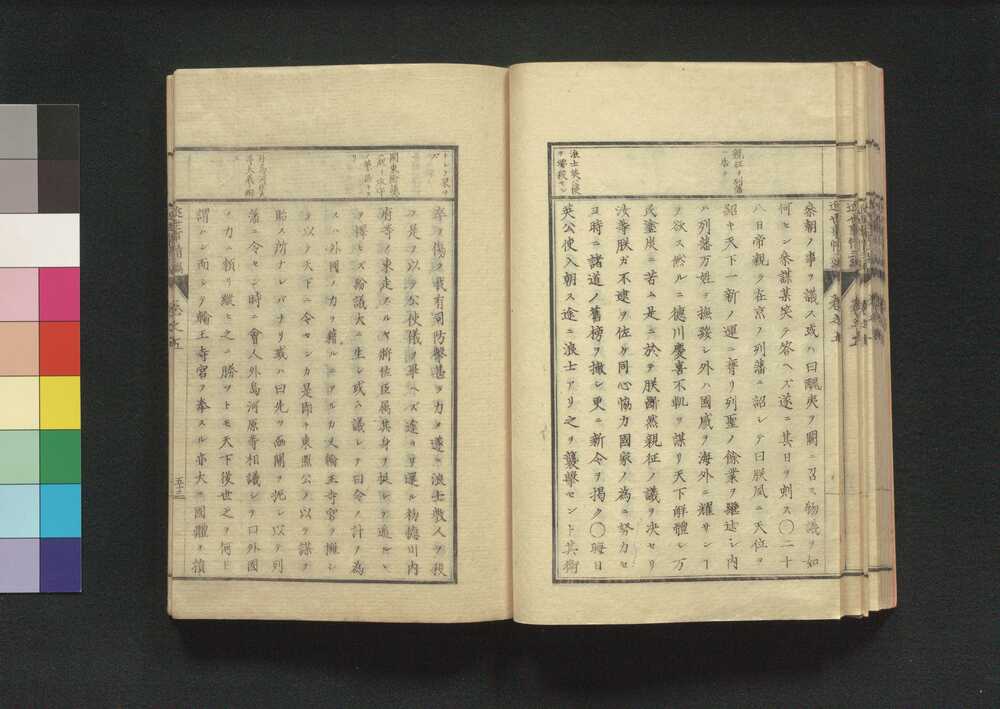 親征ヲ列藩
ニ告ク
浪士英公使
ヲ襲殺セン
参朝ノ事ヲ議ス或ハ曰醜夷ヲ闕ニ召ス物議ヲ如
何セン参謀某笑テ答ヘズ遂ニ其日ヲ刺ス〇二十
八日帝親ク在京ノ列藩ニ詔シテ曰朕夙ニ天位ヲ
詔ヤ天下一新ノ運ニ膺リ列聖ノ餘業ヲ継述シ内
ハ列藩万姓ヲ撫綏シ外ハ國威ヲ海外ニ耀サンヿ
ヲ欲ス然ルニ德川慶喜不軌ヲ謀リ天下解體シ万
民塗炭ニ苦ム是ニ於テ朕断然親征ノ議ヲ决セリ
汝等朕ガ不逮ヲ佐ケ同心協力國家ノ為ニ努力セ
ヨ時ニ諸道ノ舊榜ヲ撤シ更ニ新令ヲ掲ク〇晦日
英公使入朝ス途ニ浪士アリ之ヲ襲撃セント其衛
関東
卒ヲ傷ク我有司防撃甚タ力ム遂ニ浪士数人ヲ殺
ス是ヲ以テ公使儀ヲ畢ヘズ途ヨリ還ル初德川内
府等ノ東走スルヤ將佐臣属其身ヲ挺シテ逃ルヽ
ヲ懌ヒズ紛議大ニ生シ或ハ議シテ曰今ノ計ヲ為
スハ外國ノ力ヲ藉ルニアルカ又輪王寺宮ヲ擁シ
ヲ以テ天下ニ令センカ是即チ東照公ノ以テ謀ヲ
貽ス所ナレバナリ或ハ曰先ツ函關ヲ扼シ以テ列
藩ニ令セン時ニ會人外島河原等相議シテ曰外國
ノ力ニ頼リ縦ヒ之ニ勝ツトモ天下後世之ヲ何ト
謂ハン而シテ輪王寺宮ヲ奉スル亦大ニ國體ヲ損
五十二